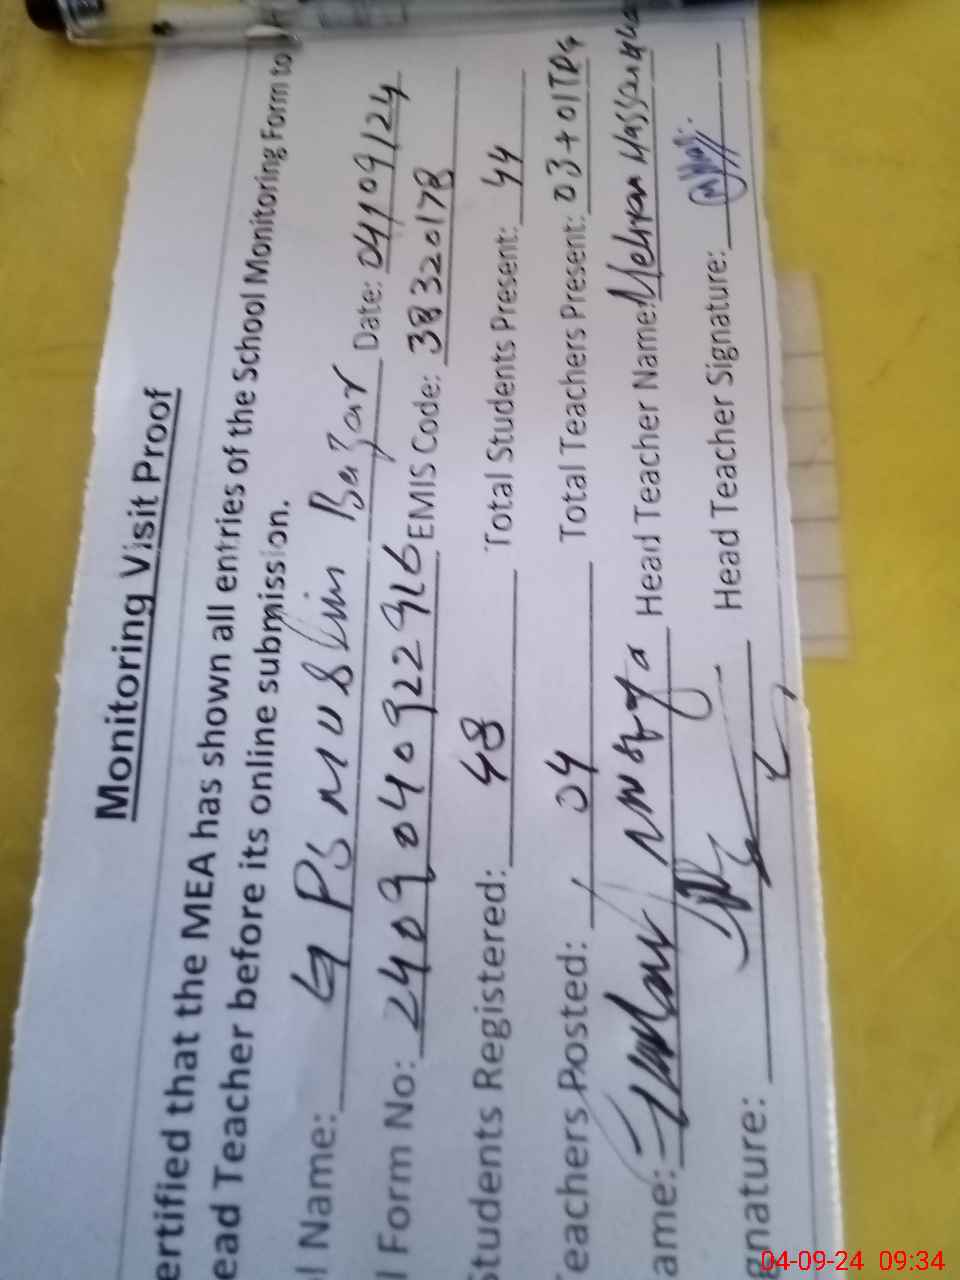 Monitoring Visit Proof
ertified that the MEA has shown all entries of the School Monitoring Form to
ead Teacher before its online submission.
l Name: GPS Muslim Bazar Date: 04/09/24
l Form No: 2409040922916 EMIS Code: 38320178
Students Registered: 48 Total Students Present: 44
Teachers Posted: 04 Total Teachers Present: 03+01TPG
ame: Head Teacher Name: Mehran
gnature: Head Teacher Signature:
04-09-24 09:34